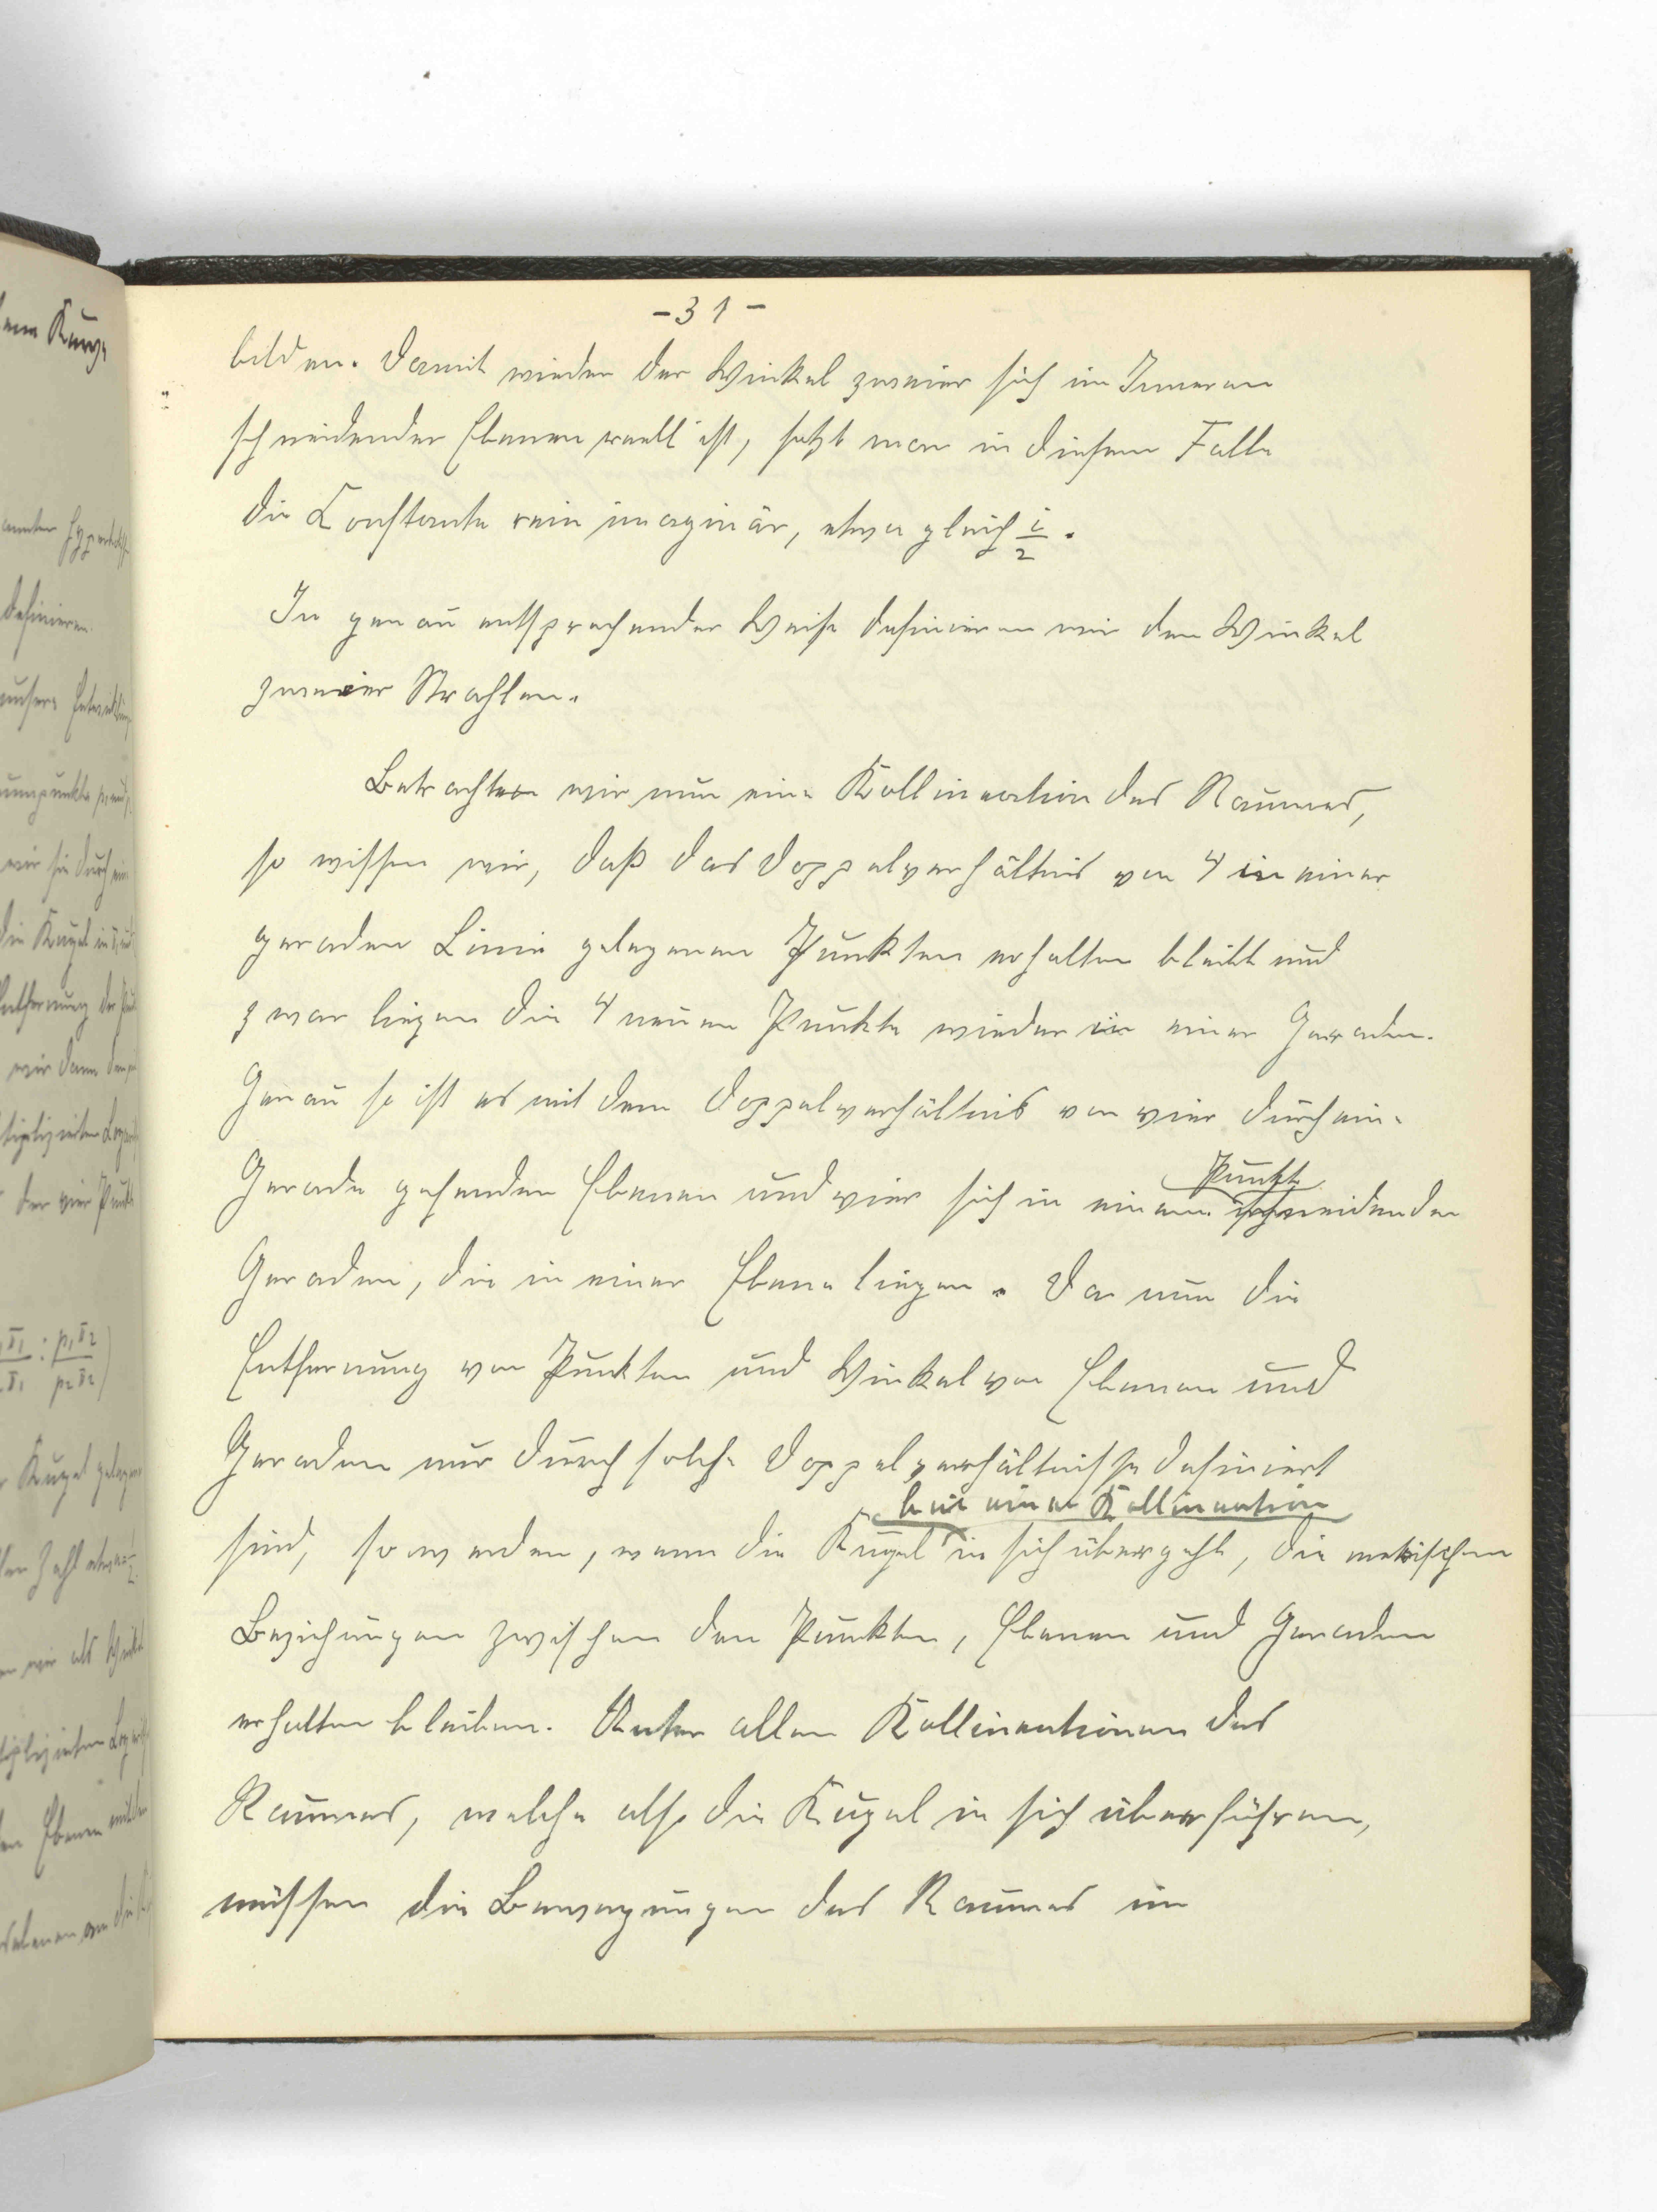 -31-
bilden. Damit wieder der Winkel zweier sich im Inneren
schneidender Ebenen reell ist, setzt man in diesem Falle
die Konstante rein imaginär, etwa gleich i/2.
In genau entsprechender Weise definieren wir den Winkel
zweier Strahlen.
Betrachten wir nun eine Kollineation des Raumes,
so wissen wir, daß das Doppelverhältnis von 4 in einer
geraden Linie gelegenen Punkten erhalten bleibt und
zwar liegen die 4 neuen Punkte wieder in einer Geraden.
Genau so ist es mit dem Doppelverhältnis von vier durch eine
Punkte
Gerade gehenden Ebenen und vier sich in einem schneidenden
Geraden, die in einer Ebene liegen. Da nun die
Entfernung von Punkten und Winkel von Ebenen und
Geraden nur durch solche Doppelverhältnisse definiert
bei einer Kollineation
sind, so werden, wenn die Kugel in sich übergeht, die metrischen
Beziehungen zwischen den Punkten, Ebenen und Geraden
erhalten bleiben. Unter allen Kollineationen des
Raumes, welche also die Kugel in sich überführen,
müssen die Bewegungen des Raumes im